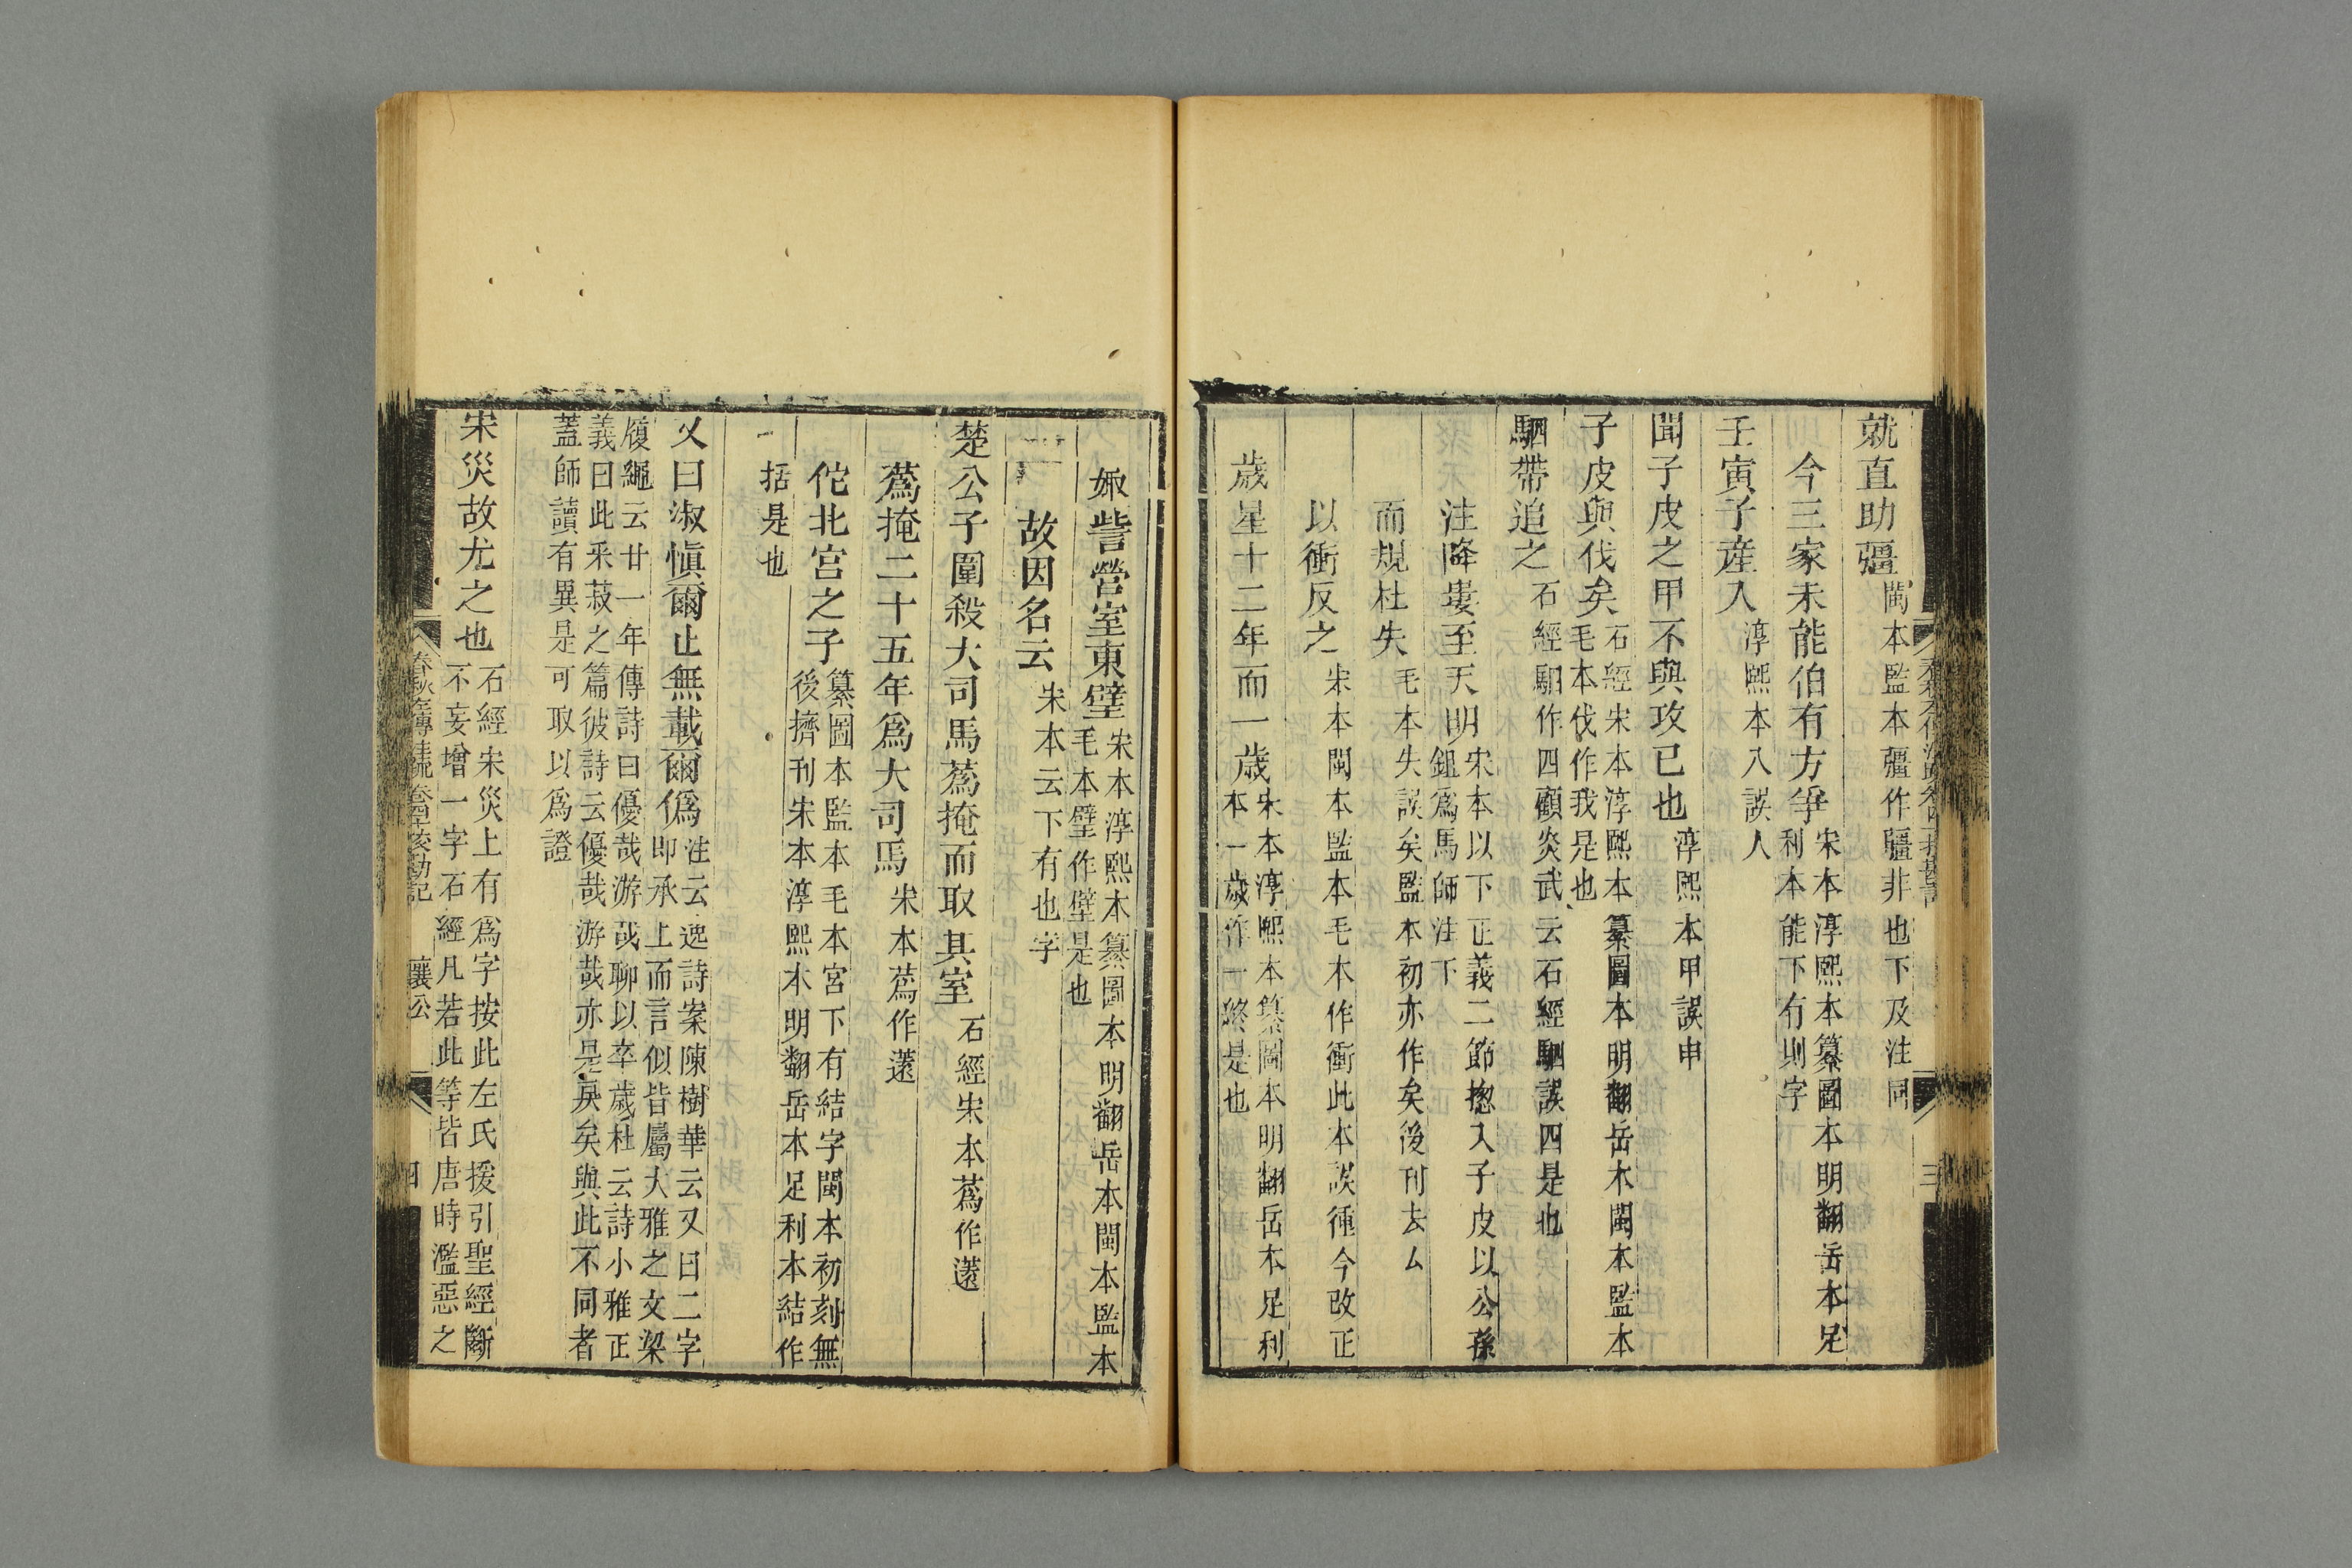 就直助彊閩本監本彊作疆非也下及注同
今三家未能伯有方爭宋本淳熙本纂圖本明翻岳本足
利本能下有則字
壬寅子產入淳熙本入誤人
聞子皮之甲不與攻已也淳熙本甲誤申
子皮與伐矣石經宋本淳熙本纂圖本明翻岳本閩本監本
毛本伐作我是也
駟帶追之石經駟作四顧炎武云石經駟誤四是也
注降婁至天明宋本以下正義二節揔入子皮以公孫
鉏爲馬師注下
而規杜失毛本失誤矣監本初亦作矣後刊去厶
以衝反之宋本閩本監本毛本作衝此本誤種今改正
歲星十二年而一歲宋本淳熙本纂圖本明翻岳本足利
本一歲作一終是也
三
娵訾營室東壁宋本淳熙本纂圖本明翻岳本閩本監本
毛本壁作壁是也
故因名云宋本云下有也字
楚公子圍殺大司馬蒍掩而取其室石經宋本蒍作薳
蒍掩二十五年爲大司馬宋本蒍作薳
佗北宮之子纂圖本監本毛本宮下有結字閩本初刻無
後擠刊宋本淳熙本明翻岳本足利本結作
括是也
又曰淑愼爾止無載爾僞注云逸詩案陳樹華云又曰二字
卽承上而言似皆屬大雅之文梁
履繩云廿一年傳詩曰優哉游哉聊以卒歲杜云詩小雅正
義曰此采菽之篇彼詩云優哉游哉亦是戾矣與此不同者
蓋師讀有異是可取以爲證
宋災故尤之也石經宋災上有爲字按此左氏援引聖經斷
不妄增一字石經凡若此等皆唐時濫惡之
春秋左傳注疏卷四十校勘記 襄公 四